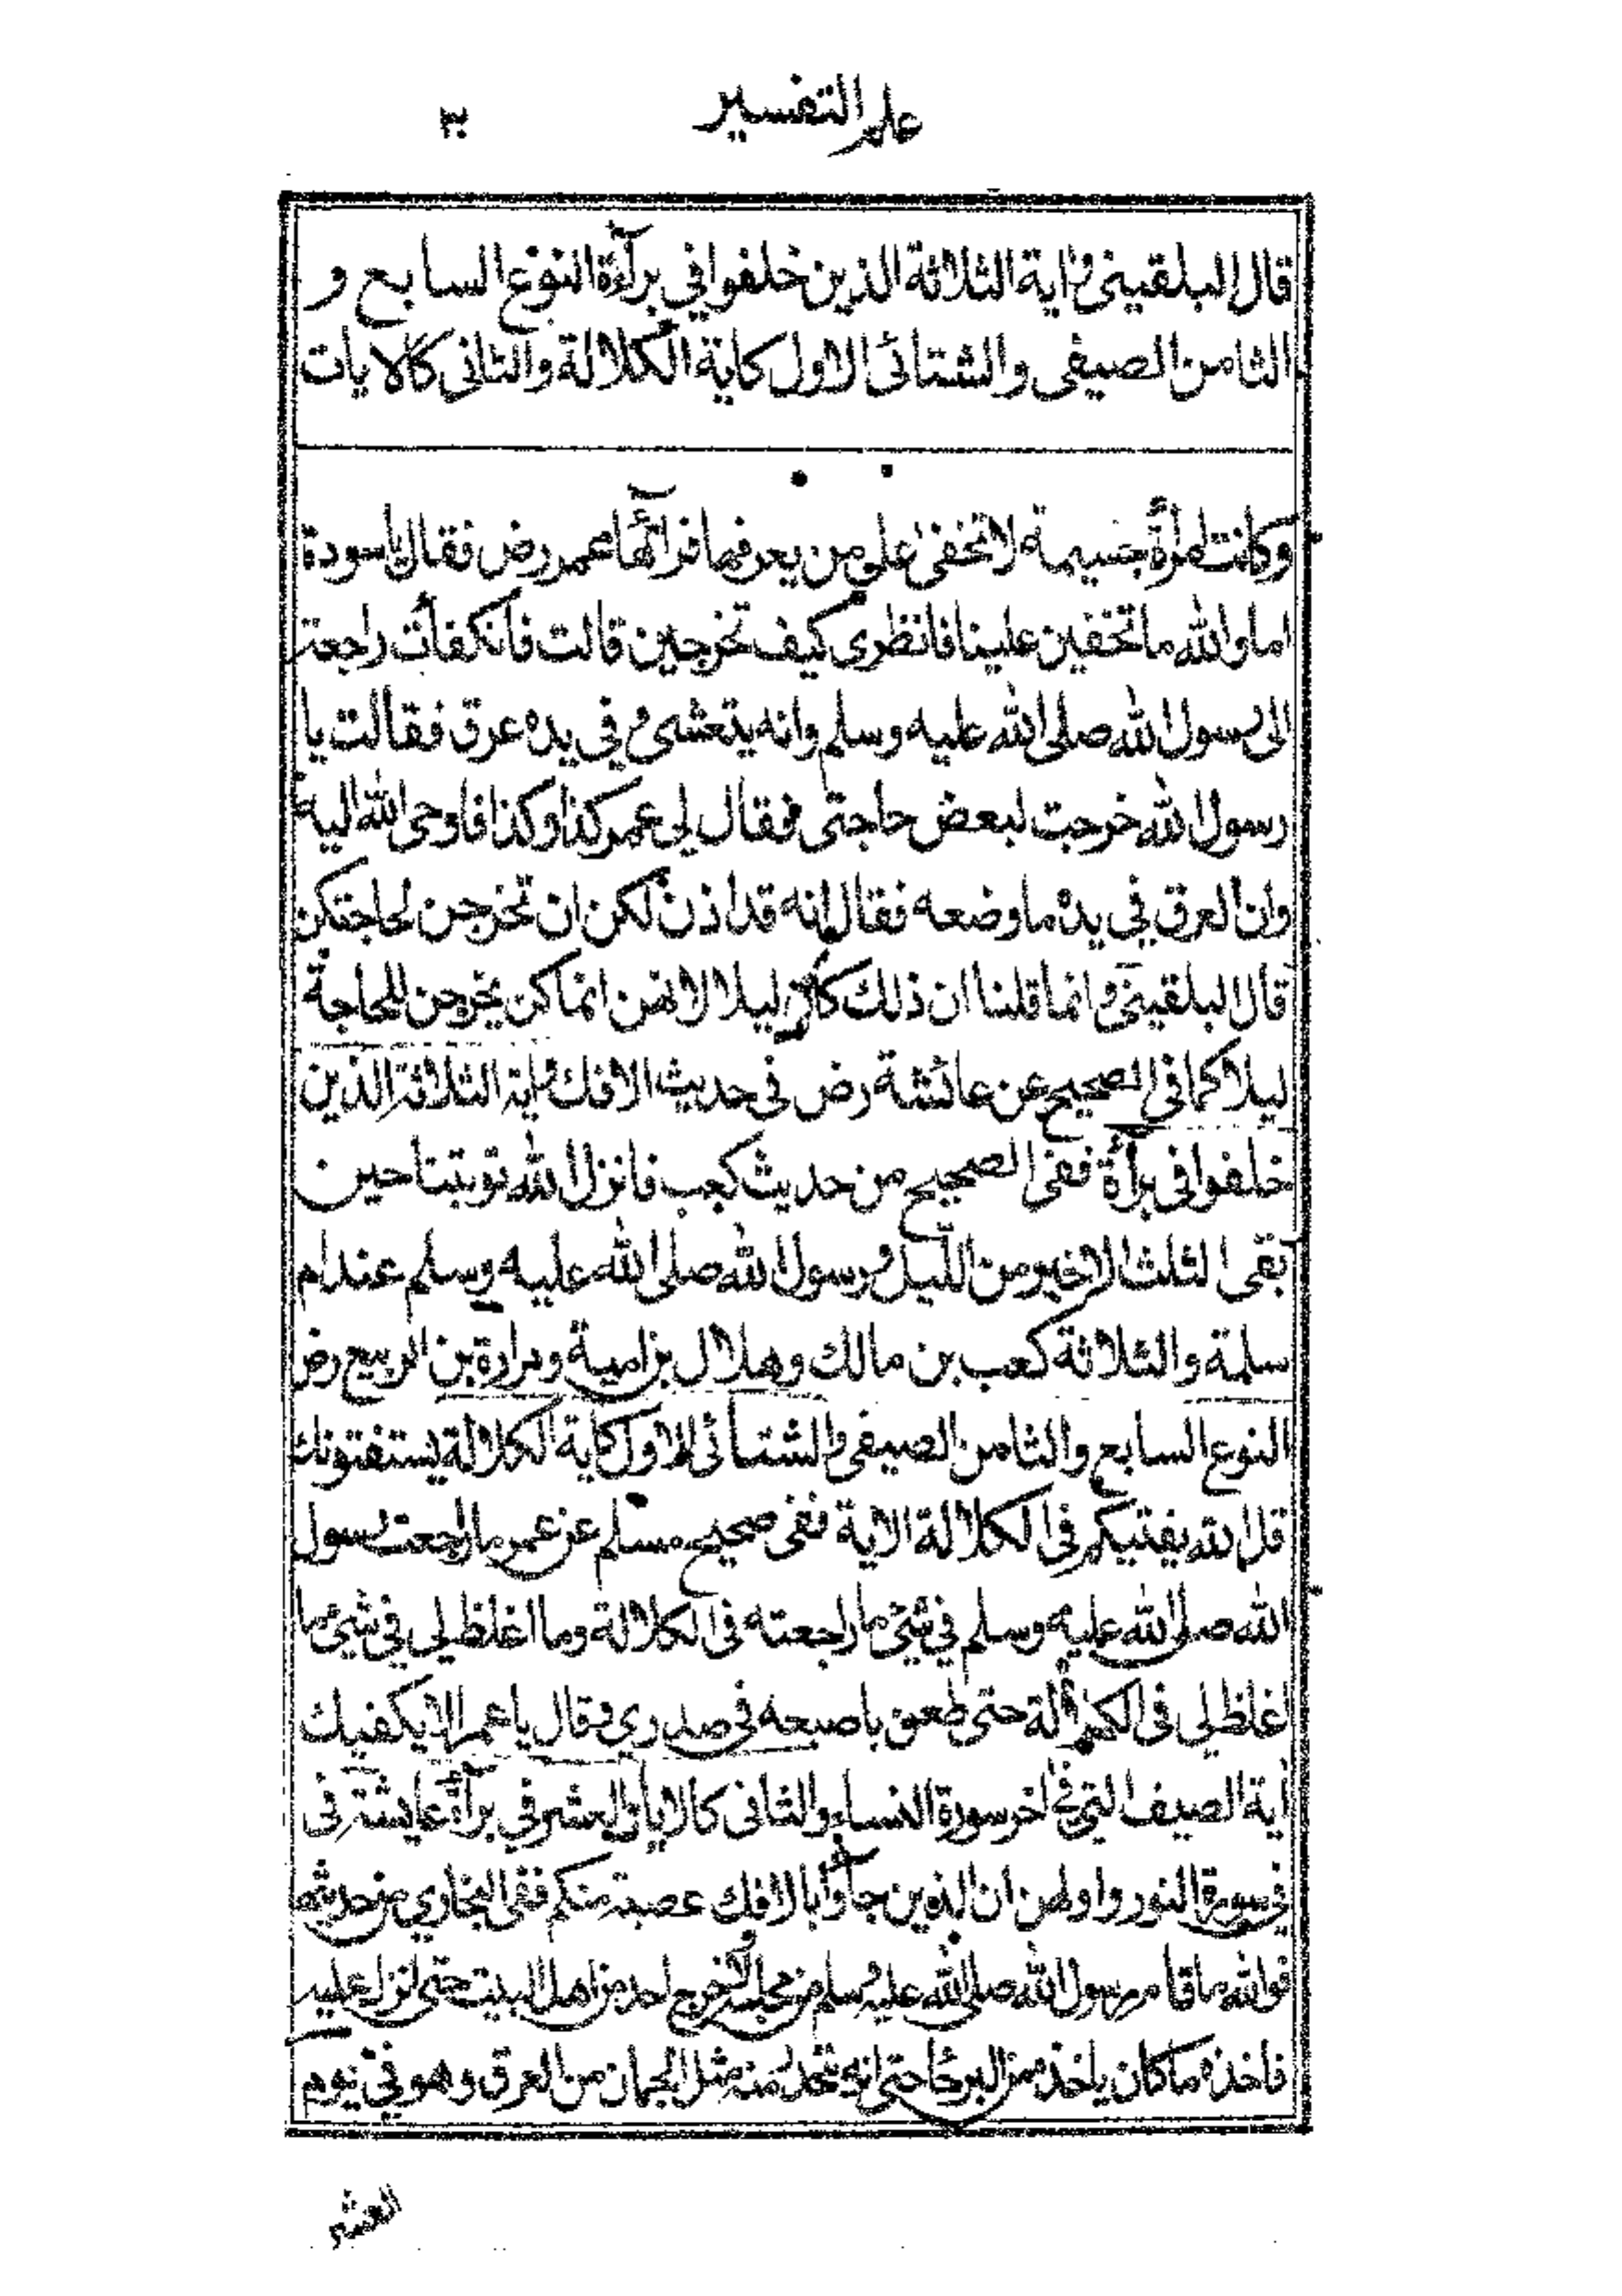 علم التفسير ٣٠
قال البلقيني واية الثلاثة الذين خلفوا في برآءة النوع السابع و
الثامن الصيفي والشتائي الاول كاية الكلالة والثاني كالايات
وكانت امرأة جسيمة لا تخفى على من يعرفها فرآها عمر رض فقال يا سودة
اما والله ما تخفين علينا فانظري كيف تخرجين قالت فانكفأت راجعة
الى رسول الله صلى الله عليه وسلم وانه يتعشى و في يده عرق فقالت يا
رسول الله خرجت لبعض حاجتي فقال لي عمر كذا وكذا فاوحى الله اليه
وان العرق في يده ما وضعه فقال انه قد اذن لكن ان تخرجن لحاجتكن
قال البلقيني وانما قلنا ان ذلك كان ليلا لانهن انما كن يخرجن للحاجة
ليلا كما في الصحيح عن عائشة رض في حديث الافك واية الثلاثة الذين
خلفوا في برآءة ففي الصحيح من حديث كعب فانزل الله توبتنا حين
بقي الثلث الاخير من الليل ورسول الله صلى الله عليه وسلم عند ام
سلمة والثلاثة كعب بن مالك وهلال بن امية ومرارة بن الربيع رض
النوع السابع والثامن الصيفي والشتائي الاول كاية الكلالة يستفتونك
قل الله يفتيكم في الكلالة الاية ففي صحيح مسلم عن عمر ما راجعت رسول
الله صلى الله عليه وسلم في شئ ما راجعته في الكلالة وما اغلظ لي في شئ ما
اغلظ لي في الكلالة حتى طعن باصبعه في صدري وقال يا عمر الا يكفيك
آية الصيف التي في اخر سورة النساء والثاني كالايات العشر في برآءة عايشة في
في سورة النور واولهن ان الذين جآوا بالافك عصبة منكم ففي البخاري من حديثها
فوالله ما قام رسول الله صلى الله عليه وسلم من مجلسه ولا خرج احد من اهل البيت حتى انزل عليه
فاخذه ما كان ياخذه من البرحا حتى انه ليتحدر منه مثل الجمان من العرق وهو في يوم